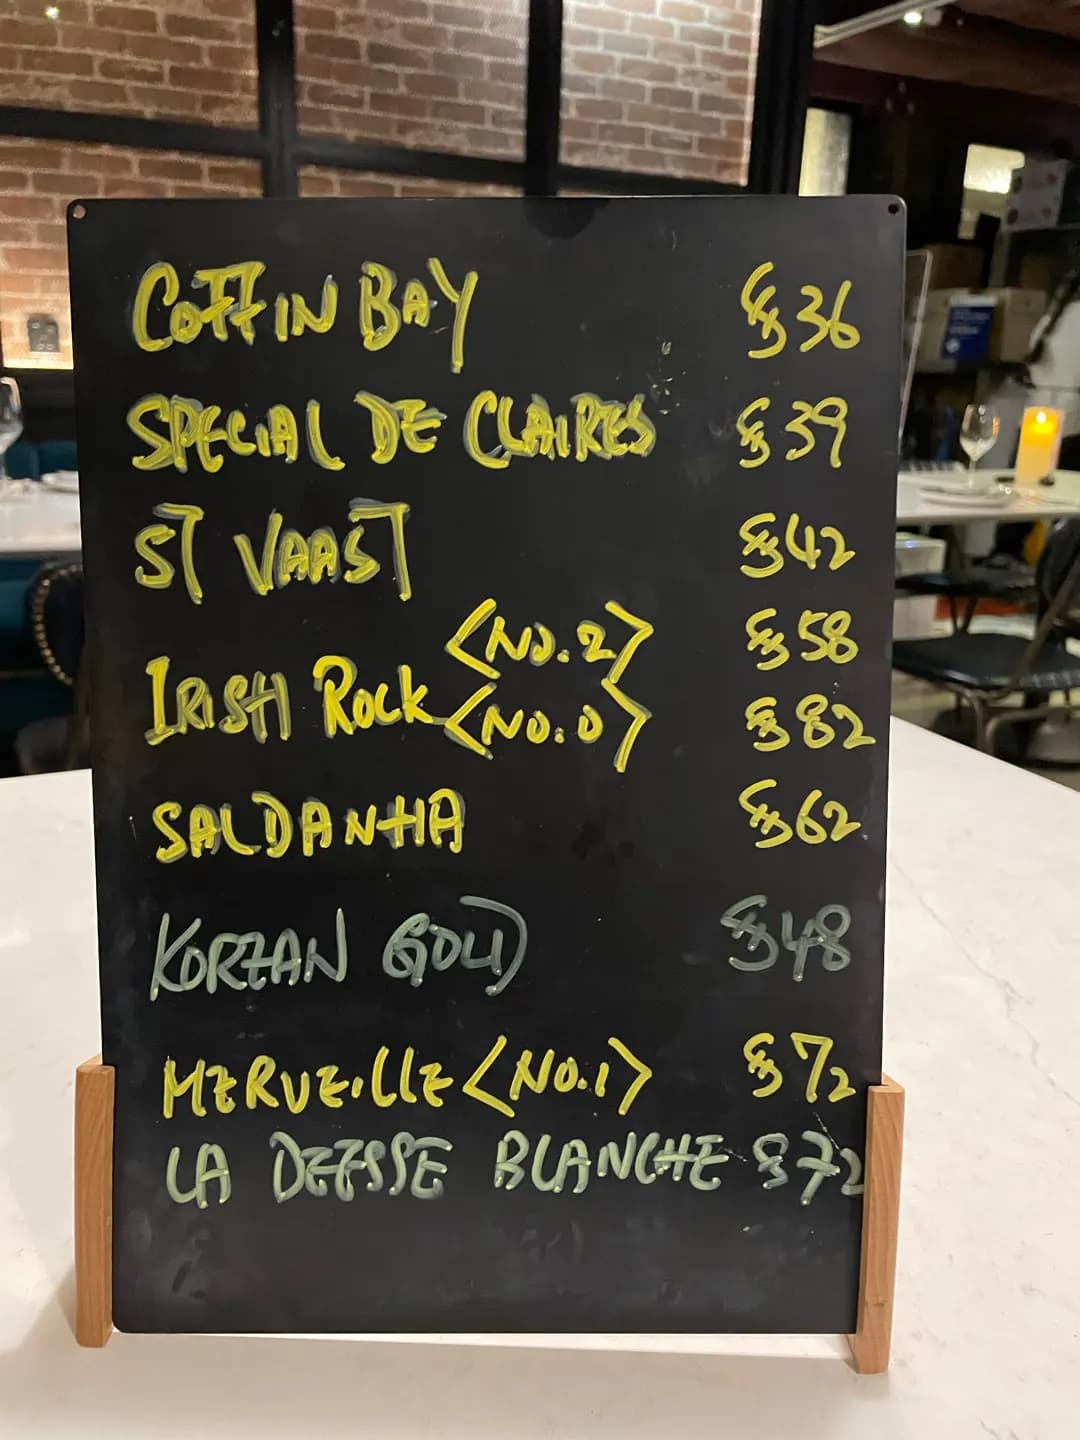 COFFIN BAY $36
SPECIAL DE CLAIRES $39
ST VAAST $42
IRISH ROCK <NO.2> $58
<NO.0> $82
SALDANHA $62
KOREAN GOLD $48
MERVEILLE <NO.1> $72
LA DEESSE BLANCHE $72